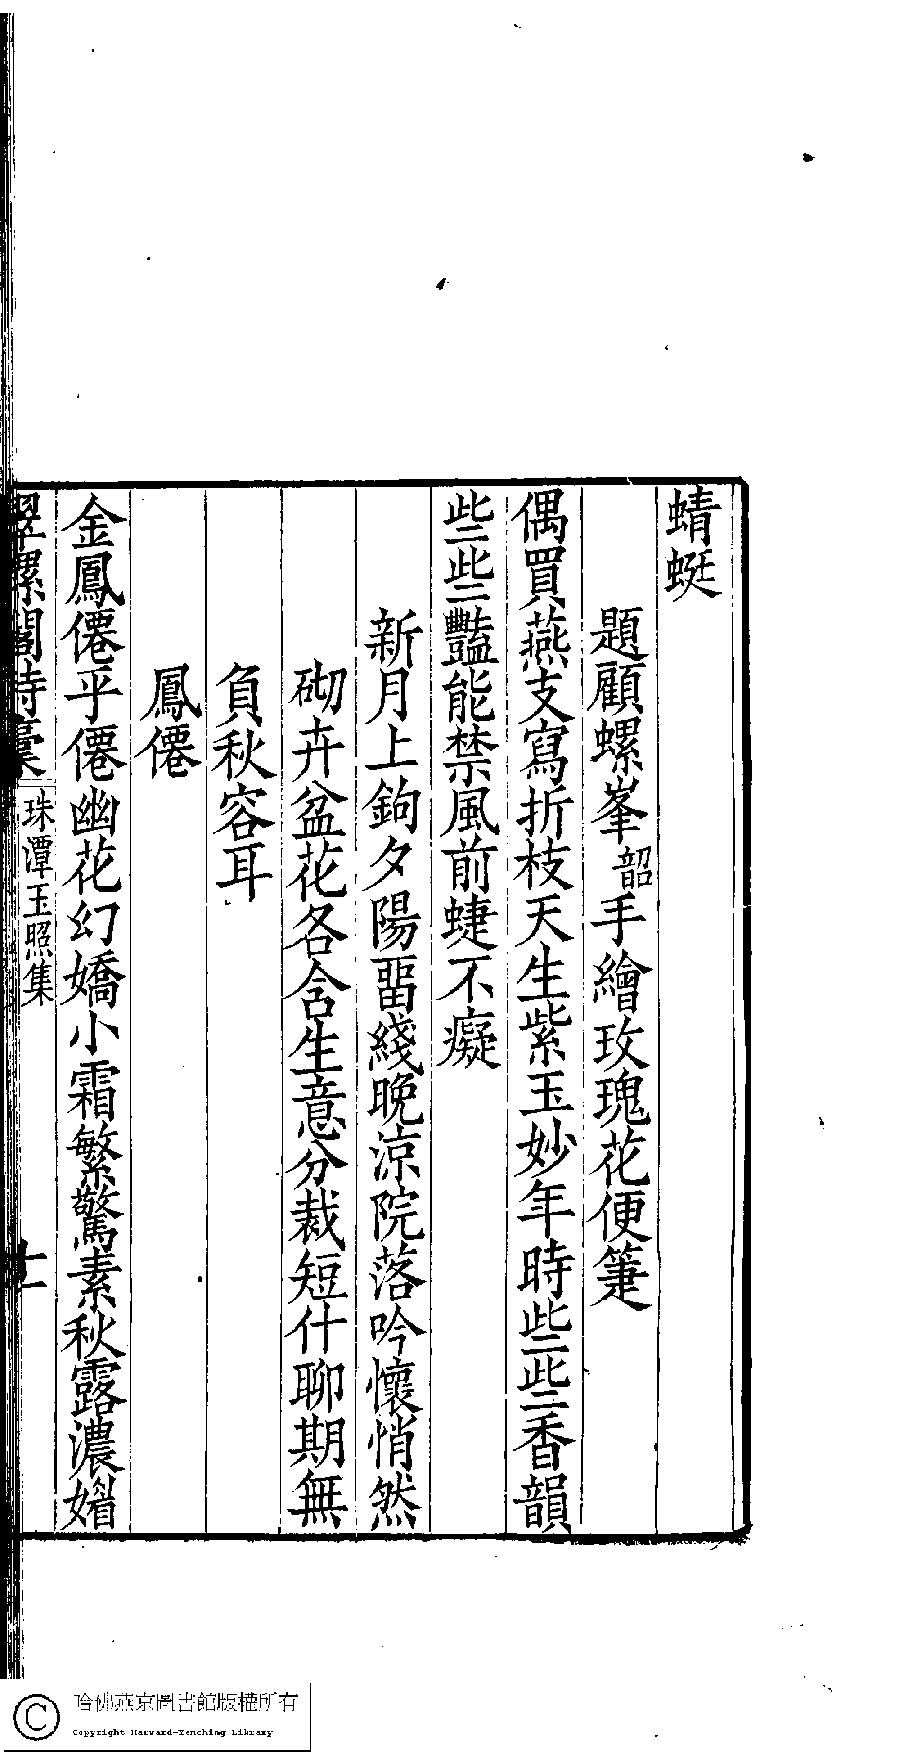 蜻蜓
題顧螺峯韶手繪玫瑰花便箑
偶買燕支寫折枝天生紫玉妙年時些些香韻
些些豔能禁風前蜨不癡
新月上鉤夕陽畱綫晚涼院落吟懷悄然
砌卉盆花各含生意分裁短什聊期無
負秋容耳
鳳僊
金鳳僊乎僊幽花幻嬌小霜繁驚素秋露濃媚
翠螺閣詩稾 珠潭玉照集 十一
哈佛燕京圖書館版權所有
Copyright Harvard-Yenching Library